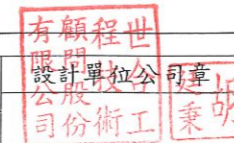 設計單位公司章
世合工
程技術
顧問股份
有限公司
胡
秉